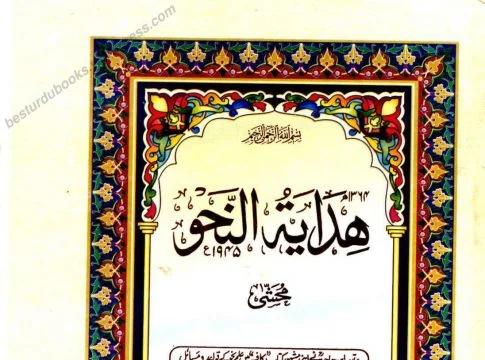 besturdubooks.
ess.com
بسم اللہ الرحمن الرحیم
۱۳۶۴م
هِدَايَةُ النَّحْو
۱۹۴۵ع
مُحَشّٰی